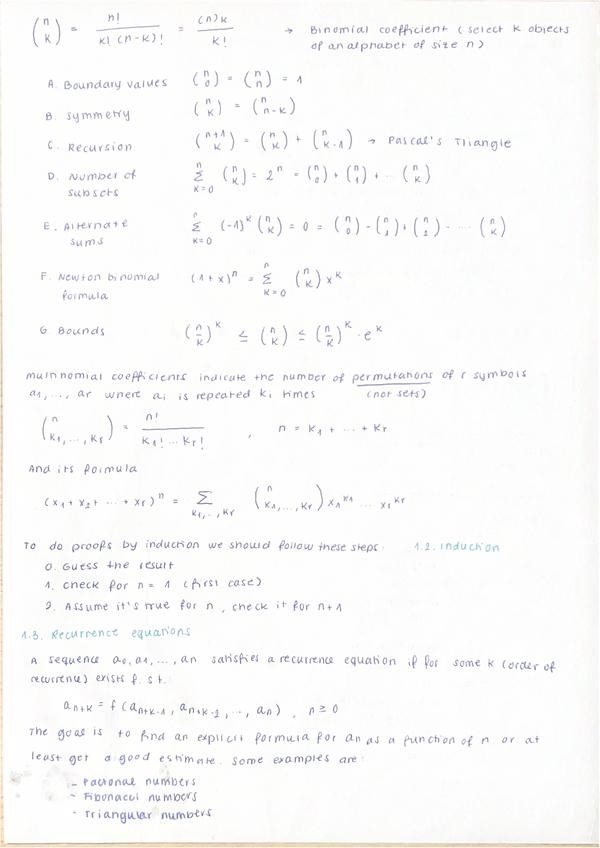 (n k) = n! / k! (n-k)! = (n)k / k! → Binomial coefficient (select k objects
of an alphabet of size n)
A. Boundary values (n 0) = (n n) = 1
B. Symmetry (n k) = (n n-k)
C. Recursion (n+1 k) = (n k) + (n k-1) → Pascal's Triangle
D. Number of subsets n Σ k=0 (n k) = 2^n = (n 0) + (n 1) + ... (n k)
E. Alternate sums n Σ k=0 (-1)^k (n k) = 0 = (n 0) - (n 1) + (n 2) - .... (n k)
F. Newton binomial formula (1+x)^n = n Σ k=0 (n k) x^k
G Bounds (n/k)^k ≤ (n k) ≤ (n/k)^k · e^k
Multinomial coefficients indicate the number of permutations of r symbols
a1, ..., ar where ai is repeated ki times (not sets)
(n k1, ..., kr) = n! / k1! ... kr! , n = k1 + ... + kr
And its formula
(x1 + x2 + ... + xr)^n = Σ k1, .., kr (n k1, ..., kr) x1^k1 ... xr^kr
To do proofs by induction we should follow these steps: 1.2. Induction
0. Guess the result
1. Check for n = 1 (first case)
2. Assume it's true for n, check it for n+1
1.3. Recurrence equations
A sequence a0, a1, ..., an satisfies a recurrence equation if for some k (order of
recurrence) exists f. s.t.
an+k = f (an+k-1, an+k-2, ..., an), n ≥ 0
The goal is to find an explicit formula for an as a function of n or at
least get a good estimate. Some examples are:
- Factorial numbers
- Fibonacci numbers
- Triangular numbers